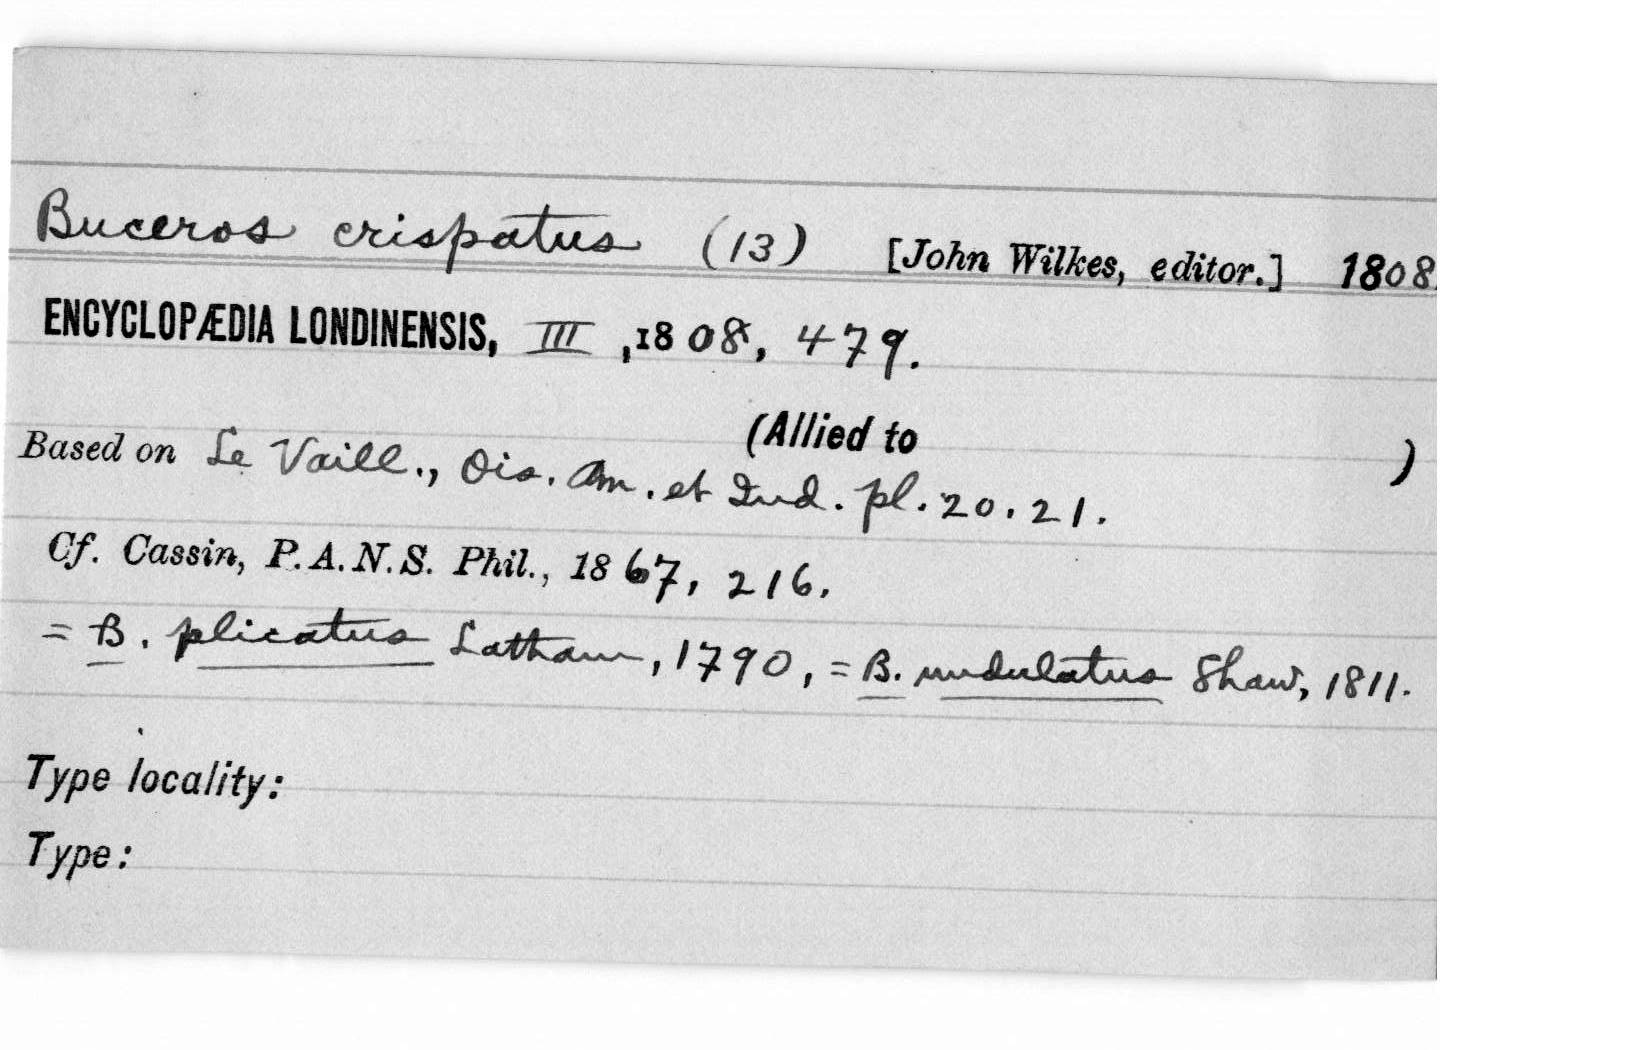 Buceros crispatus (13) [John Wilkes, editor.] 1808.
ENCYCLOPÆDIA LONDINENSIS, III, 1808, 479.
(Allied to )
Based on Le Vaill., Ois. Am. et Ind. pl. 20. 21.
Cf. Cassin, P. A. N. S. Phil., 1867, 216.
= B. plicatus Latham, 1790, = B. undulatus Shaw, 1811.
Type locality:
Type: